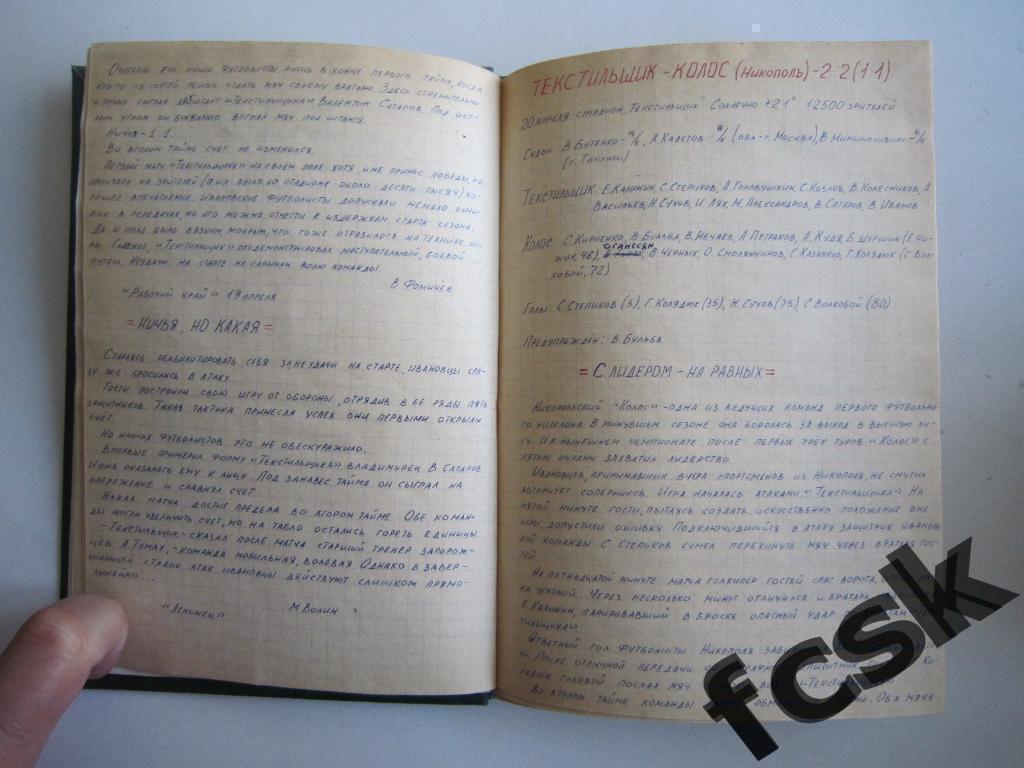 Отыграли гол наши футболисты лишь в конце первого тайма, когда
кто-то из гостей решил отдать мяч своему вратарю. Здесь стремительно
и точно сыграл дебютант "Текстильщика" Валентин Сатаров. Под ост-
рым углом он буквально вогнал мяч под штангу.
Ничья - 1:1.
Во втором тайме счет не изменился.
Первый матч "Текстильщика" на своем поле хотя и не принес победы, но
произвел на зрителей (а их было на стадионе около десяти тысяч) хо-
рошее впечатление. Ивановские футболисты допускали немало оши-
бок в передачах, но это можно отнести к издержкам старта сезона.
Да и поле было вязким, мокрым, что тоже отразилось на технике иг-
ры. Главное, "Текстильщик" продемонстрировал наступательный, боевой
футбол. Неудачи на старте не сломили волю команды.
В Фомичев
"Рабочий край" 19 апреля
= Ничья, но какая =
Стараясь реабилитировать себя за неудачи на старте, ивановцы сра-
зу же бросились в атаку.
Гости построили свою игру от обороны, отрядив в её ряды пять
защитников. Такая тактика принесла успех: они первыми открыли
счет.
Но наших футболистов это не обескуражило.
Впервые примерил форму "Текстильщика" владимирец В Сатаров
И она оказалась ему к лицу. Под занавес тайма он сыграл на
опережение и сравнял счет.
Накал матча достиг предела во втором тайме. Обе коман-
ды могли увеличить счет, но на табло остались гореть единицы
- Текстильщик - сказал после матча старший тренер запорож-
цев А. Томах, - команда мобильная, волевая. Однако в завер-
шающей стадии атак ивановцы действуют слишком прямо-
линейно...
"Ленинец" М Волин
Текстильщик - Колос (Никополь) - 2:2 (1:1)
20 апреля. стадион "Текстильщик" Солнечно +21° 12500 зрителей
Судьи: В Бутенко - м/к, А Кадетов - в/к (оба - г. Москва), В Миминошвили - в/к
(г. Тбилиси)
Текстильщик: Е. Калинин, С Степиков, А. Головушкин, С Козлов, В Колесников, А
Васильев, Н. Сухов, И. Лях, М. Александров, В. Сатаров, В Иванов
Оганесян
Колос: С Кириенко, В Бульба, В Нечаев, А Петраков, А. Кудя, Б Шуршин (Е. Ни-
жник, 46), В. Черных, О. Смолянинов, С Казанков, Г. Колядюк (С Вол-
ковой, 72)
Голы: С Степиков (5), Г. Колядюк (35), Н. Сухов (75), С Волковой (80)
Предупрежден: В. Бульба
= С лидером - на равных =
Никопольский "Колос" - одна из ведущих команд первого футбольно-
го эшелона. В минувшем сезоне она боролась за выход в высшую ли-
гу. И в нынешнем чемпионате после первых трех туров "Колос" с
пятью очками захватил лидерство.
Ивановцев, принимавших вчера спортсменов из Никополя, не смутил
авторитет соперников. Игра началась атаками "Текстильщика". На
пятой минуте гости, пытаясь создать искусственно положение вне
игры, допустили ошибку Подключившийся в атаку защитник ивановс-
кой команды С Степиков сумел перекинуть мяч через вратаря гос-
тей.
На пятнадцатой минуте матча голкипер гостей спас ворота, отбив мяч
на угловой. Через несколько минут отличился и вратарь
Е. Калинин, парировавший в броске опасный удар
тильщика"
Ответный гол футболисты Никополя
После отличной передачи защитник Ко-
лядюк головой послал мяч в ворота "Текстильщика"
Во втором тайме команды Оба мяча
fcsk